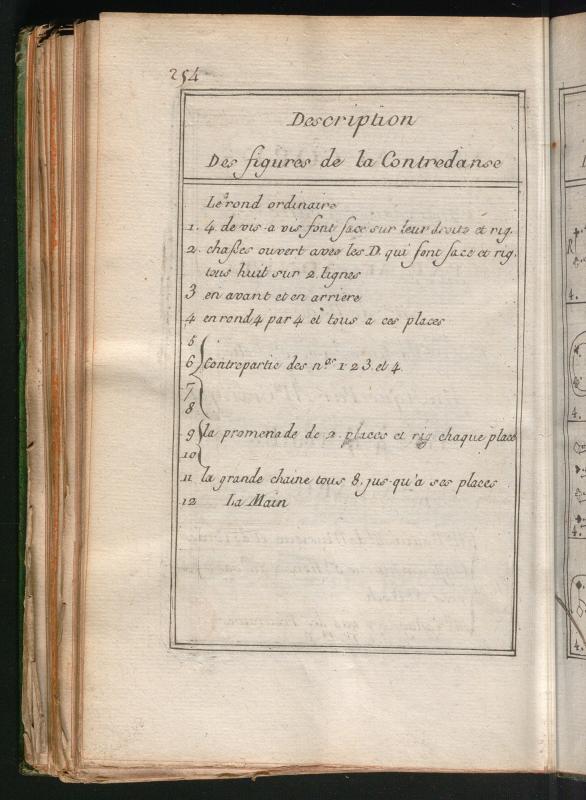 254
Description
Des figures de la Contredanse
Le rond ordinaire
1. 4. de vis-a vis font face sur leur droite et rig.
2. chaßes ouvert aves les D. qui font face et rig.
tous huit sur 2 lignes
3 en avant et en arriere
4 en rond 4 par 4 et tous a ces places
5
6 Contrepartie des n.os 1 2 3 et 4.
7
8
9 la promenade de 2 places et rig chaque place
10
11 la grande chaine tous 8. jus-qu'a ses places
12 La Main
R
4.
4.
4.
4.